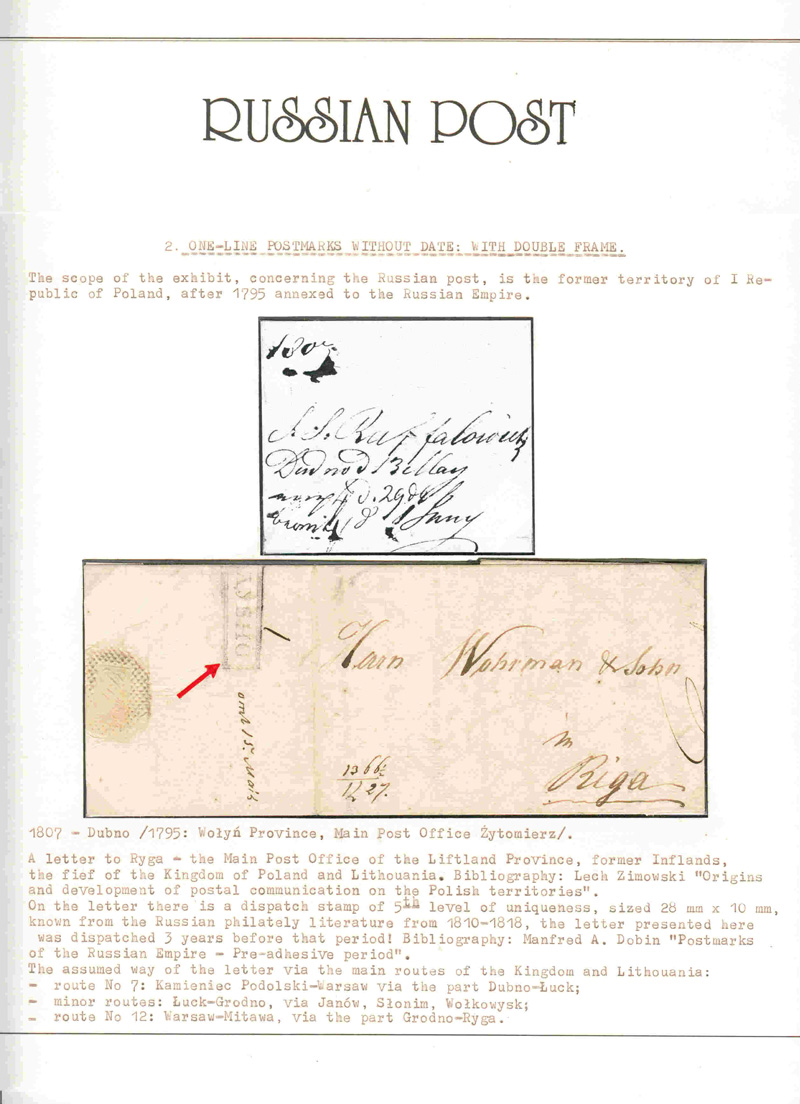 RUSSIAN POST
2. ONE-LINE POSTMARKS WITHOUT DATE: WITH DOUBLE FRAME.
The scope of the exhibit, concerning the Russian post, is the former territory of I Re-
public of Poland, after 1795 annexed to the Russian Empire.
1807
J. S. Raffalowich
Dubno d 13 May
d. 29 dt
18 Juny
Herrn Wöhrman & Sohn
in
Riga
1807 - Dubno /1795: Wołyń Province, Main Post Office Żytomierz/.
A letter to Ryga - the Main Post Office of the Liftland Province, former Inflands,
the fief of the Kingdom of Poland and Lithouania. Bibliography: Lech Zimowski "Origins
and development of postal communication on the Polish territories".
On the letter there is a dispatch stamp of 5th level of uniqueness, sized 28 mm x 10 mm,
known from the Russian philately literature from 1810-1818, the letter presented here
was dispatched 3 years before that period! Bibliography: Manfred A. Dobin "Postmarks
of the Russian Empire - Pre-adhesive period".
The assumed way of the letter via the main routes of the Kingdom and Lithouania:
- route No 7: Kamieniec Podolski-Warsaw via the part Dubno-Łuck;
- minor routes: Łuck-Grodno, via Janów, Słonim, Wołkowysk;
- route No 12: Warsaw-Mitawa, via the part Grodno-Ryga.